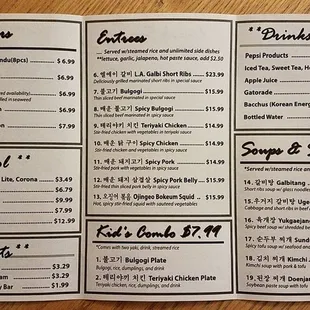 ndu(8pcs) $ 6.99
$6.99
availability)
led in seaweed
$6.99
$7.99
Lite, Corona $3.49
$6.79
$7.99
$12.99
$3.29
$3.29
Bar $1.99
Entrees
Served w/steamed rice and unlimited side dishes
**lettuce, garlic, jalapeno, hot paste sauce, add $2.50
6. 엘에이 갈비 L.A. Galbi Short Ribs $23.99
Deliciously grilled marinated short ribs in special sauce
7. 불고기 Bulgogi $15.99
Thin sliced beef marinated in special sauce
8. 매운 불고기 Spicy Bulgogi $15.99
Thin sliced beef marinated in spicy sauce
9. 테리야키 치킨 Teriyaki Chicken $14.99
Stir-fried chicken with vegetables in teriyaki sauce
10. 매운 닭 구이 Spicy Chicken $14.99
Stir-fried chicken and vegetables in spicy sauce
11. 매운 돼지고기 Spicy Pork $14.99
Stir-fried marinated pork in spicy sauce
12. 매운 돼지 삼겹살 Spicy Pork Belly $15.99
Stir-fried thin sliced pork belly in spicy sauce
13. 오징어 볶음 Ojingeo Bokeum Squid $15.99
Hot, spicy stir-fried squid with sauteed vegetables
Kid's Combo $7.99
*Comes with two yaki, drink, streamed rice
1. 불고기 Bulgogi Plate
Bulgogi, rice, dumplings, and drink
2. 테리야키 치킨 Teriyaki Chicken Plate
Chicken, rice, dumplings, and drink
**Drinks
Pepsi Products
Iced Tea, Sweet Tea, H
Apple Juice
Gatorade
Bacchus (Korean Energ
Bottled Water
Soups & S
*Served w/steamed rice and
14. 갈비탕 Galbitang
Short ribs soup w/ glass noodles
15. 우거지 갈비탕 Uge
Cabbage and short ribs in beef
16. 육개장 Yukgaejan
17. 순두부 찌개 Sund
18. 김치 찌개 Kimchi J
Kimchi soup with pork & tofu
19. 된장 찌개 Doenj
Soybean paste soup with tofu